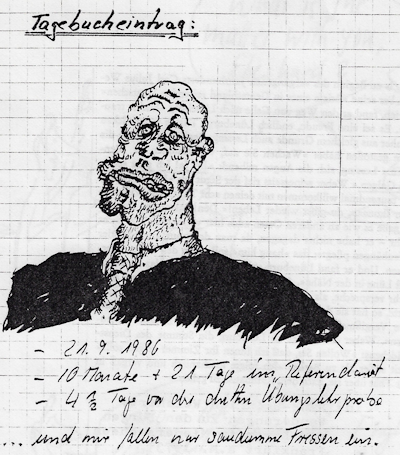 Tagebucheintrag:
- 21. 9. 1986
- 10 Monate + 21 Tage im „Referendariat
- 4 1/2 Tage vor der dritten Übungslehrprobe
... und mir fallen nur saudumme Fressen ein.